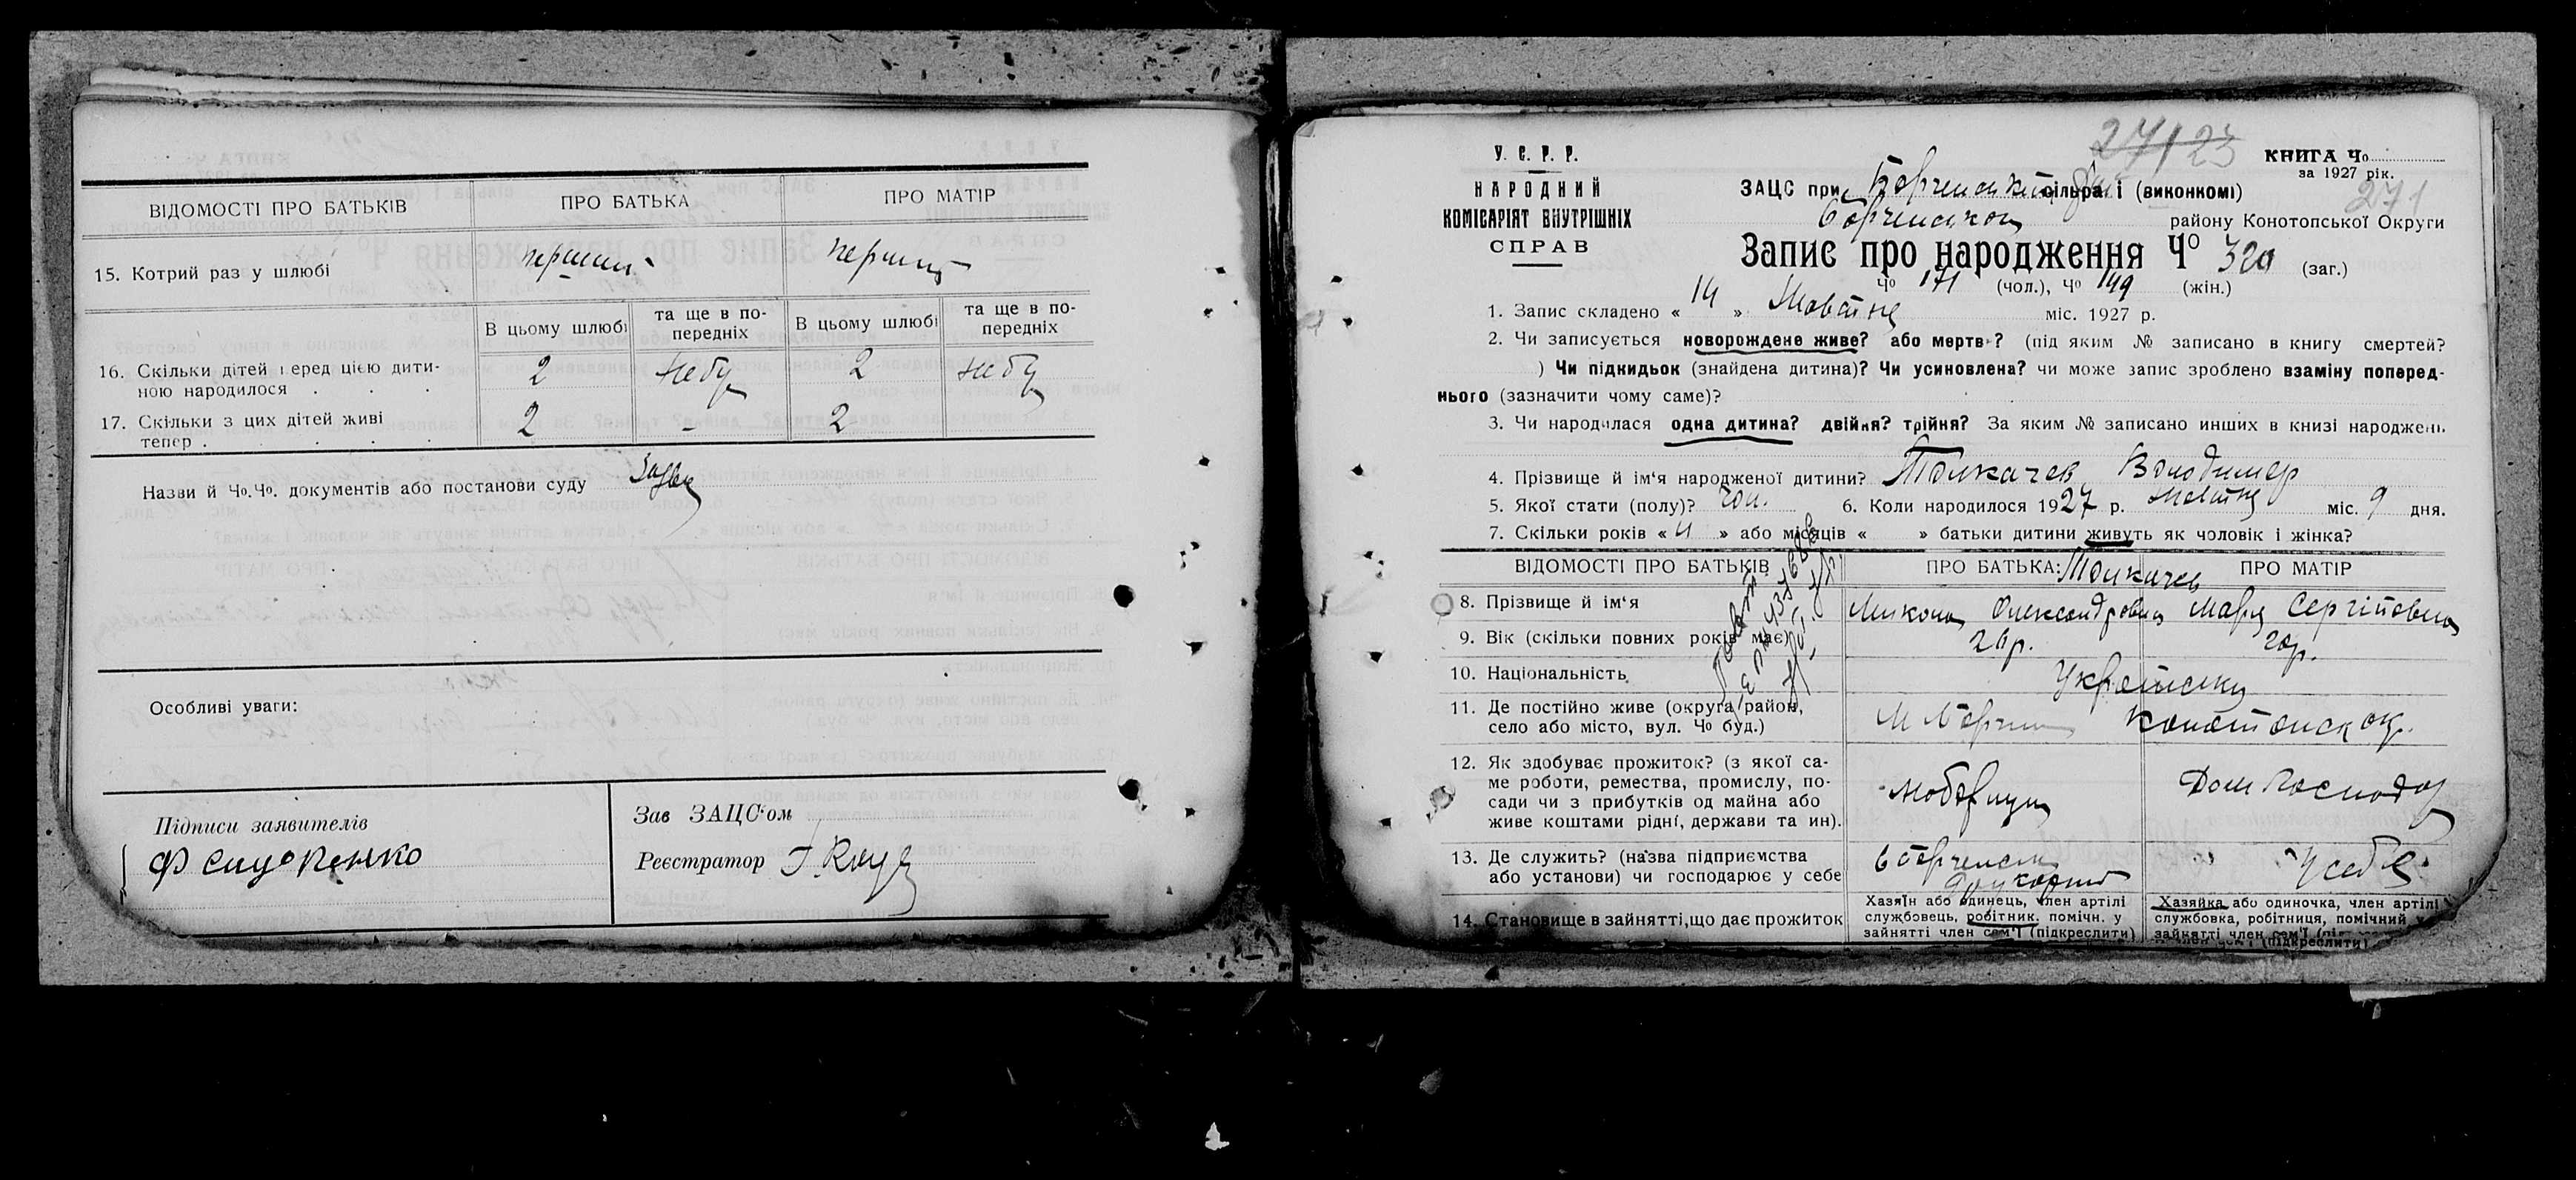 ВІДОМОСТІ ПРО БАТЬКІВ
ПРО БАТЬКА
ПРО МАТІР
15. Котрий раз у шлюбі
перший
В цьому шлюбі
та ще в по-
передніх
В цьому шлюбі
та ще в по-
передніх
16. Скільки дітей перед цією дити-
ною народилося . . .
2
2
17. Скільки з цих дітей живі
тепер . . . . .
2
-
2
Назви й Чо.Чо. документів або постанови суду
Особливі уваги:
Підписи заявителів
Зав ЗАЦС‘ом
Реєстратор
У. С. Р. Р.
НАРОДНИЙ
КОМІСАРІЯТ ВНУТРІШНІХ
СПРАВ
27/23
КНИГА Чо
за 1927 рік.
271
ЗАЦС при Борченській сільраді (виконкомі)
Борченського району Конотопської Округи
Запис про народження Чо 320 (заг.)
Чо 171 (чол.), Чо 149 (жін.)
1. Запис складено « 14 » Жовтня міс. 1927 р.
2. Чи записується новорождене живе? або мертве? (під яким № записано в книгу смертей?
) Чи підкидьок (знайдена дитина)? Чи усиновлена? чи може запис зроблено взаміну поперед-
нього (зазначити чому саме)?
3. Чи народилася одна дитина? двійня? трійня? За яким № записано инших в книзі народжень
4. Прізвище й ім‘я народженої дитини? Толкачев Володимер
5. Якої стати (полу)? чол. 6. Коли народилося 1927 р. Жовтня міс. 9 дня.
7. Скільки років « 4 » або місяців « » батьки дитини живуть як чоловік і жінка?
ВІДОМОСТІ ПРО БАТЬКІВ
ПРО БАТЬКА:
Толкачев
ПРО МАТІР
8. Прізвище й ім‘я
Микола Олександрович
Марія Сергіївна
9. Вік (скільки повних років має)
26р.
10. Національність
Українську
11. Де постійно живе (округа, район,
село або місто, вул. Чо буд.)
М Борзна Конотопск ок.
12. Як здобуває прожиток? (з якої са-
ме роботи, ремества, промислу, по-
сади чи з прибутків од майна або
живе коштами рідні, держави та ин).
Дом Господар
13. Де служить? (назва підприємства
або установи) чи господарює у себе
друкарні
У себе
14. Становище в зайнятті,що дає прожиток
Хазяїн або одинець, член артілі
службовець, робітник. помічн. у
зайнятті член сем‘ї (підкреслити)
Хазяйка або одиночка, член артілі
службовка, робітниця, помічний у
зайнятті член сем‘ї (підкреслити)